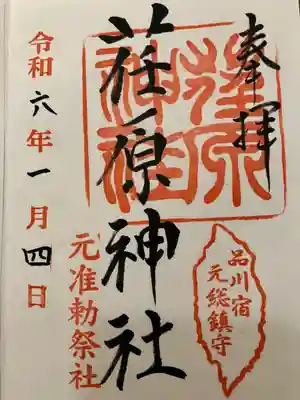 奉拝
荏原神社
荏原
神社
品川宿
元総鎮守
元准勅祭社
令和六年一月四日